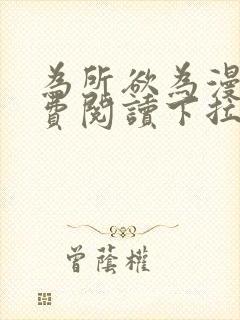 為所欲為漫
費閱讀下拉
曾蔭權